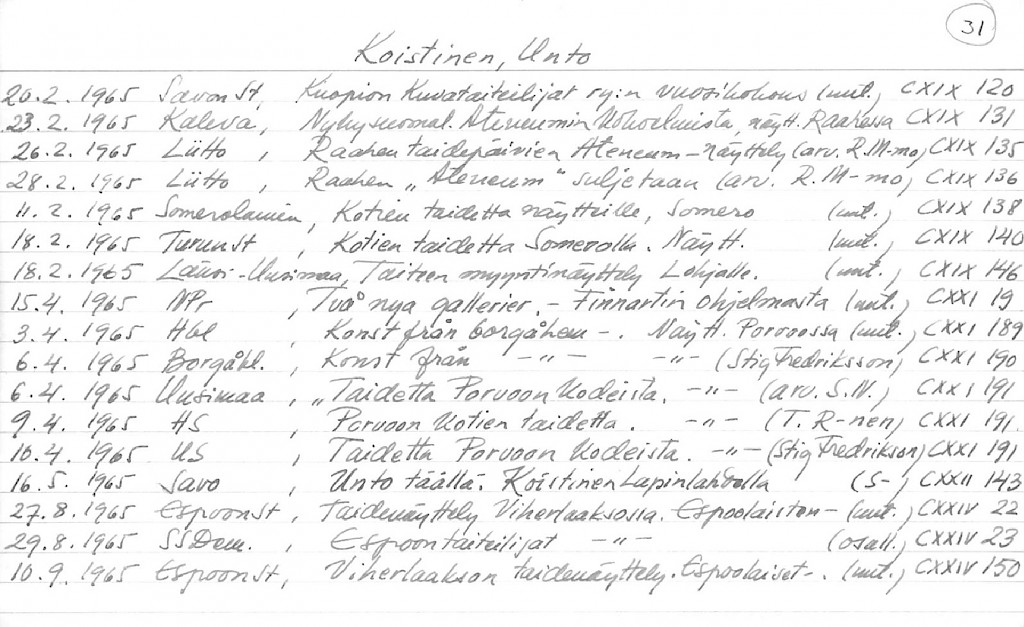 31
Koistinen, Unto
20.2. 1965 Savon St, Kuopion Kuvataiteilijat ry:n vuosikokous (uut.) CXIX 120
23.2. 1965 Kaleva, Nykysuomal. Ateneumin kokoelmista, näytt. Raahessa CXIX 131
26.2. 1965 Liitto, Raahen taidepäivien Ateneum-näyttely (arv. R.M-mo) CXIX 135
28.2. 1965 Liitto, Raahen „Ateneum" suljetaan (arv. R.M-mo) CXIX 136
11.2. 1965 Somerolainen, Kotien taidetta näytteille, Somero (uut.) CXIX 138
18.2. 1965 Turun St, Kotien taidetta Somerolla. Näytt. (uut.) CXIX 140
18.2. 1965 Länsi-Uusimaa, Taiteen myyntinäyttely Lohjalle. (uut.) CXIX 146
15.4. 1965 NPr, Två nya gallerier. - Finnartin ohjelmasta (uut.) CXXI 19
3.4. 1965 Hbl, Konst från borgåhem -. Näytt. Porvoossa (uut.) CXXI 189
6.4. 1965 Borgåbl., Konst från -"- -"- (Stig Fredriksson) CXXI 190
6.4. 1965 Uusimaa, „Taidetta Porvoon kodeista. -"- (arv. S.N.) CXXI 191
9.4. 1965 HS, Porvoon kotien taidetta. -"- (T. R-nen) CXXI 191.
10.4. 1965 US, Taidetta Porvoon kodeista. -"- (Stig Fredrikson) CXXI 191
16.5. 1965 Savo, Unto täällä. Koistinen Lapinlahdella (S-) CXXII 143
27.8. 1965 Espoon st, Taidenäyttely Viherlaaksossa. Espoolaisten- (uut.) CXXIV 22
29.8. 1965 SSDem., Espoon taiteilijat -"- (osall.) CXXIV 23
10.9. 1965 Espoon st, Viherlaakson taidenäyttely. Espoolaiset-. (uut.) CXXIV 150